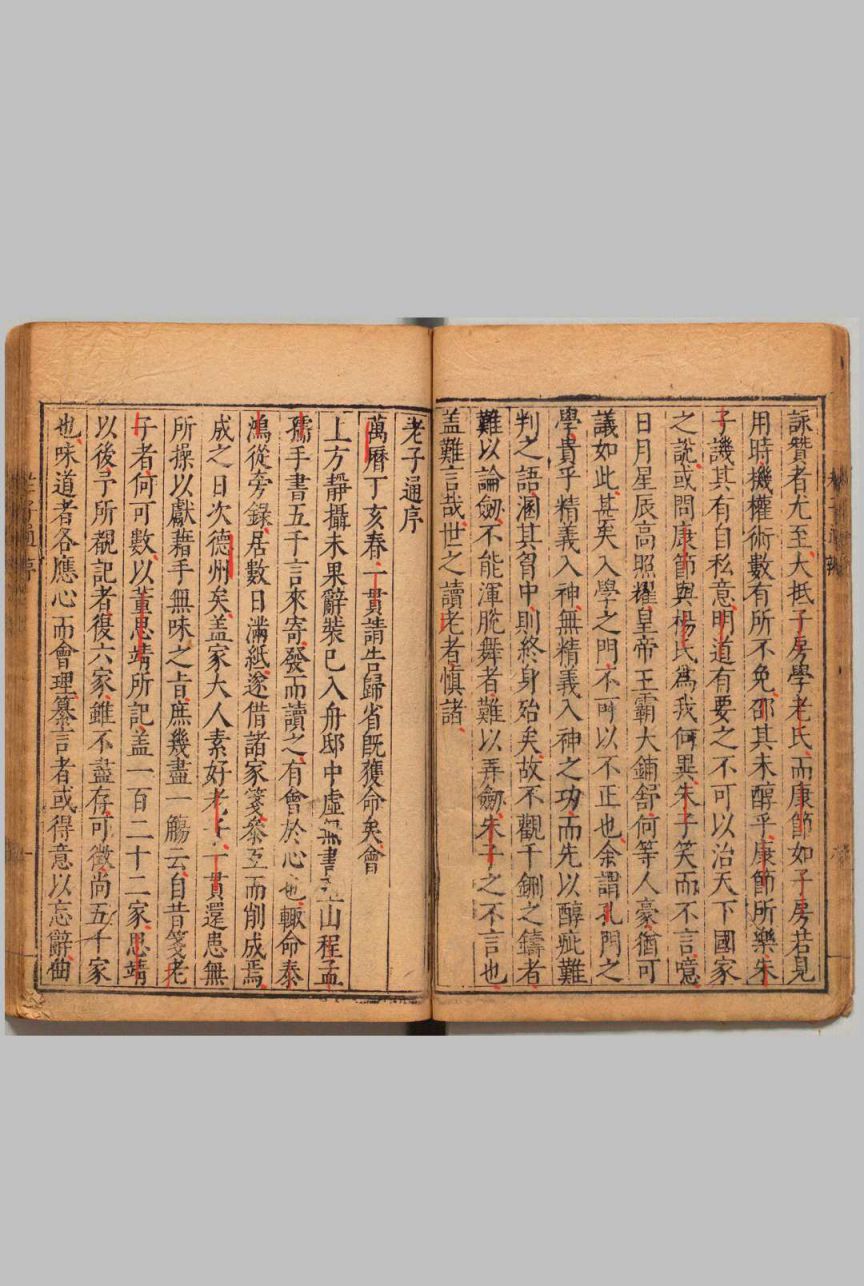 詠贊者尤至大抵子房學老氏而康節如子房若見
用時機權術數有所不免邵其未醇乎康節所樂朱
子譏其有自私意明道有要之不可以治天下國家
之說或問康節與楊氏爲我何異朱子笑而不言噫
日月星辰高照耀皇帝王霸大鋪舒何等人豪猶可
議如此甚矣入學之門不可以不正也余謂孔門之
學貴乎精義入神無精義入神之功而先以醇疵難
判之語溷其胷中則終身殆矣故不觀干鉶之鑄者
難以論劒不能渾脫舞者難以弄劒朱子之不言也
盖難言哉世之讀老者慎諸
老子通序
萬曆丁亥春一貫請告歸省既獲命矣會
上方靜攝未果辭裝已入舟邸中虛無書山程孟
孺手書五千言來寄發而讀之有會於心也輙命泰
鴻從旁錄居數日滿紙遂借諸家箋叅互而削成焉
成之日次德州矣盖家大人素好老子一貫還患無
所操以獻藉手無味之旨庶幾盡一觴云自昔箋老
子者何可數以董思靖所記盖一百二十二家思靖
以後予所覩記者復六家雖不盡存可徵尚五千家
也味道者各應心而會理纂言者或得意以忘辭曲
老子通序